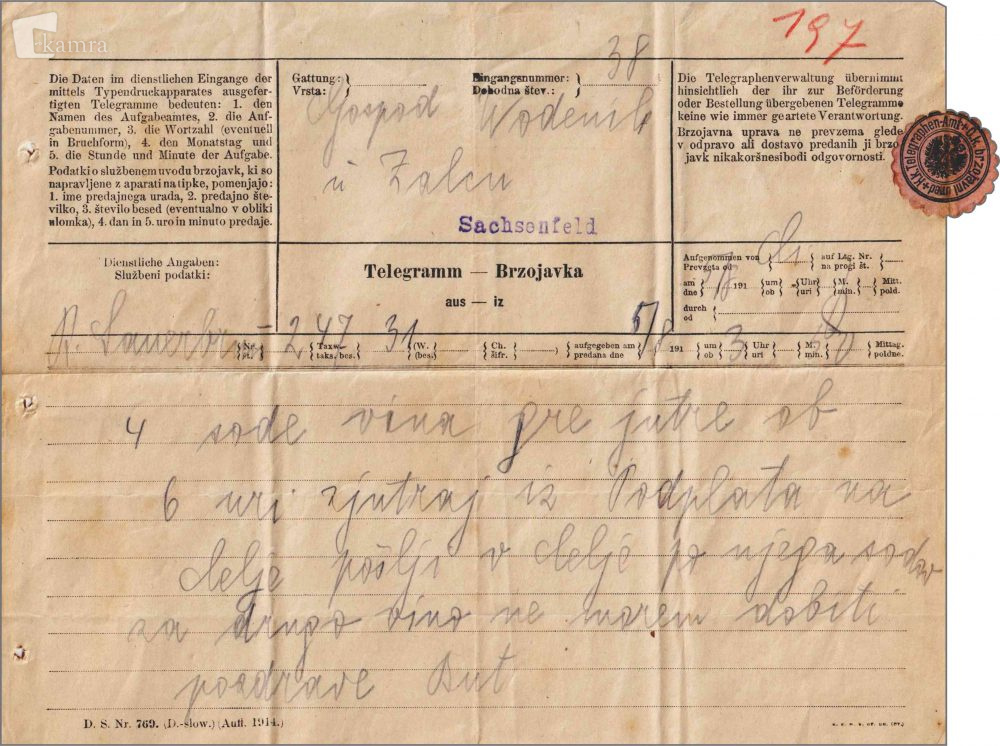 kamra
197
Die Daten im dienstlichen Eingange der
mittels Typendruckapparates ausgefer-
tigten Telegramme bedeuten: 1. den
Namen des Aufgabeamtes, 2. die Auf-
gabenummer, 3. die Wortzahl (eventuell
in Bruchform), 4. den Monatstag und
5. die Stunde und Minute der Aufgabe.
Podatki o službenem uvodu brzojavk, ki so
napravljene z aparati na tipke, pomenjajo:
1. ime predajnega urada, 2. predajno šte-
vilko, 3. število besed (eventualno v obliki
ulomka), 4. dan in 5. uro in minuto predaje.
Gattung:
Vrsta:
Eingangsnummer: 38
Dohodna štev.:
Gospod Wodenik
u Zalcu
Sachsenfeld
Die Telegraphenverwaltung übernimmt
hinsichtlich der ihr zur Beförderung
oder Bestellung übergebenen Telegramme
keine wie immer geartete Verantwortung.
Brzojavna uprava ne prevzema glede
v odpravo ali dostavo predanih ji brzo-
javk nikakoršnesibodi odgovornosti.
K.k. Telegraphen-Amt c.k. brzojavni urad
Dienstliche Angaben:
Službeni podatki:
Telegramm — Brzojavka
aus — iz
Aufgenommen von auf Ltg. Nr.
Prevzeta od na progi št.
am 191 um Uhr M. Mitt.
dne ob uri min. pold.
durch
od
247 31 5/8 3
Nr. Taxw. (W. Ch. aufgegeben am 191 um Uhr M. Mittag.
št. taks. bes. (bes. šifr. predana dne ob uri min. poldne.
4 sode vina pre jutre ob
6 uri zjutraj iz Podplata na
Celje pošlji v Celje po njega sodov
za drugo vino ne morem dobiti
pozdrave But
D. S. Nr. 769. (D.-slow.) (Aufl. 1914.)